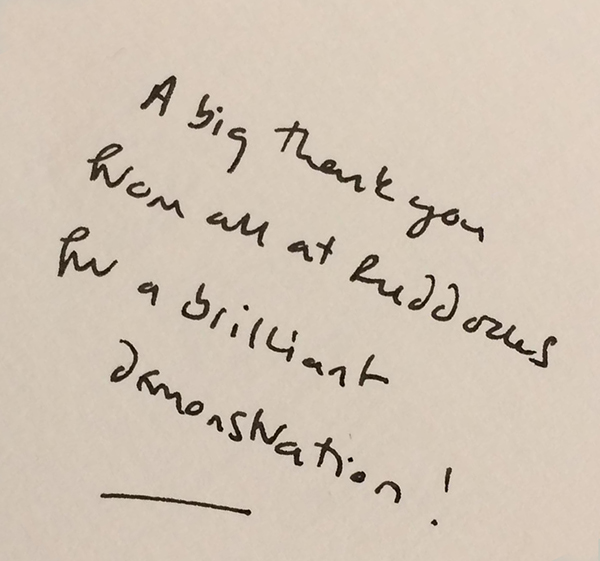 A big thank you
from all at Ruddocks
for a brilliant
demonstration!